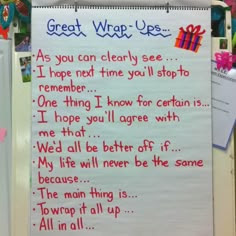 Great Wrap-Ups...
· As you can clearly see ...
· I hope next time you'll stop to
remember...
· One thing I know for certain is...
· I hope you'll agree with
me that ...
· We'd all be better off if...
· My life will never be the same
because...
· The main thing is...
· To wrap it all up ...
· All in all ...